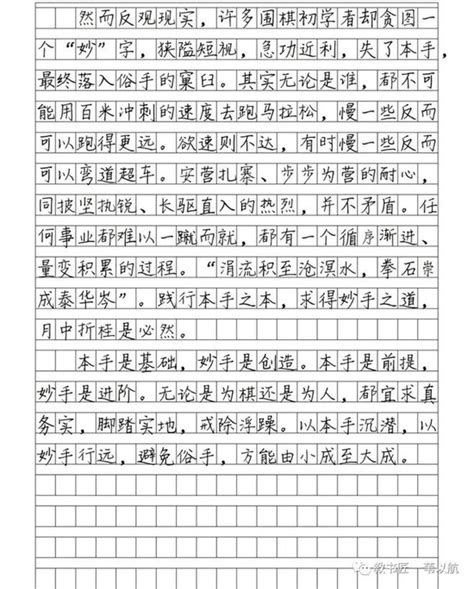 然而反观现实，许多围棋初学者却贪图一
个“妙”字，狭隘短视，急功近利，失了本手，
最终落入俗手的窠臼。其实无论是谁，都不可
能用百米冲刺的速度去跑马拉松，慢一些反而
可以跑得更远。欲速则不达，有时慢一些反而
可以弯道超车。安营扎寨、步步为营的耐心，
同披坚执锐、长驱直入的热烈，并不矛盾。任
何事业都难以一蹴而就，都有一个循序渐进、
量变积累的过程。“涓流积至沧溟水，拳石崇
成泰华岑”。践行本手之本，求得妙手之道，
月中折桂是必然。
本手是基础，妙手是创造。本手是前提，
妙手是进阶。无论是为棋还是为人，都宜求真
务实，脚踏实地，戒除浮躁。以本手沉潜，以
妙手行远，避免俗手，方能由小成至大成。
教书匠 一苇以航